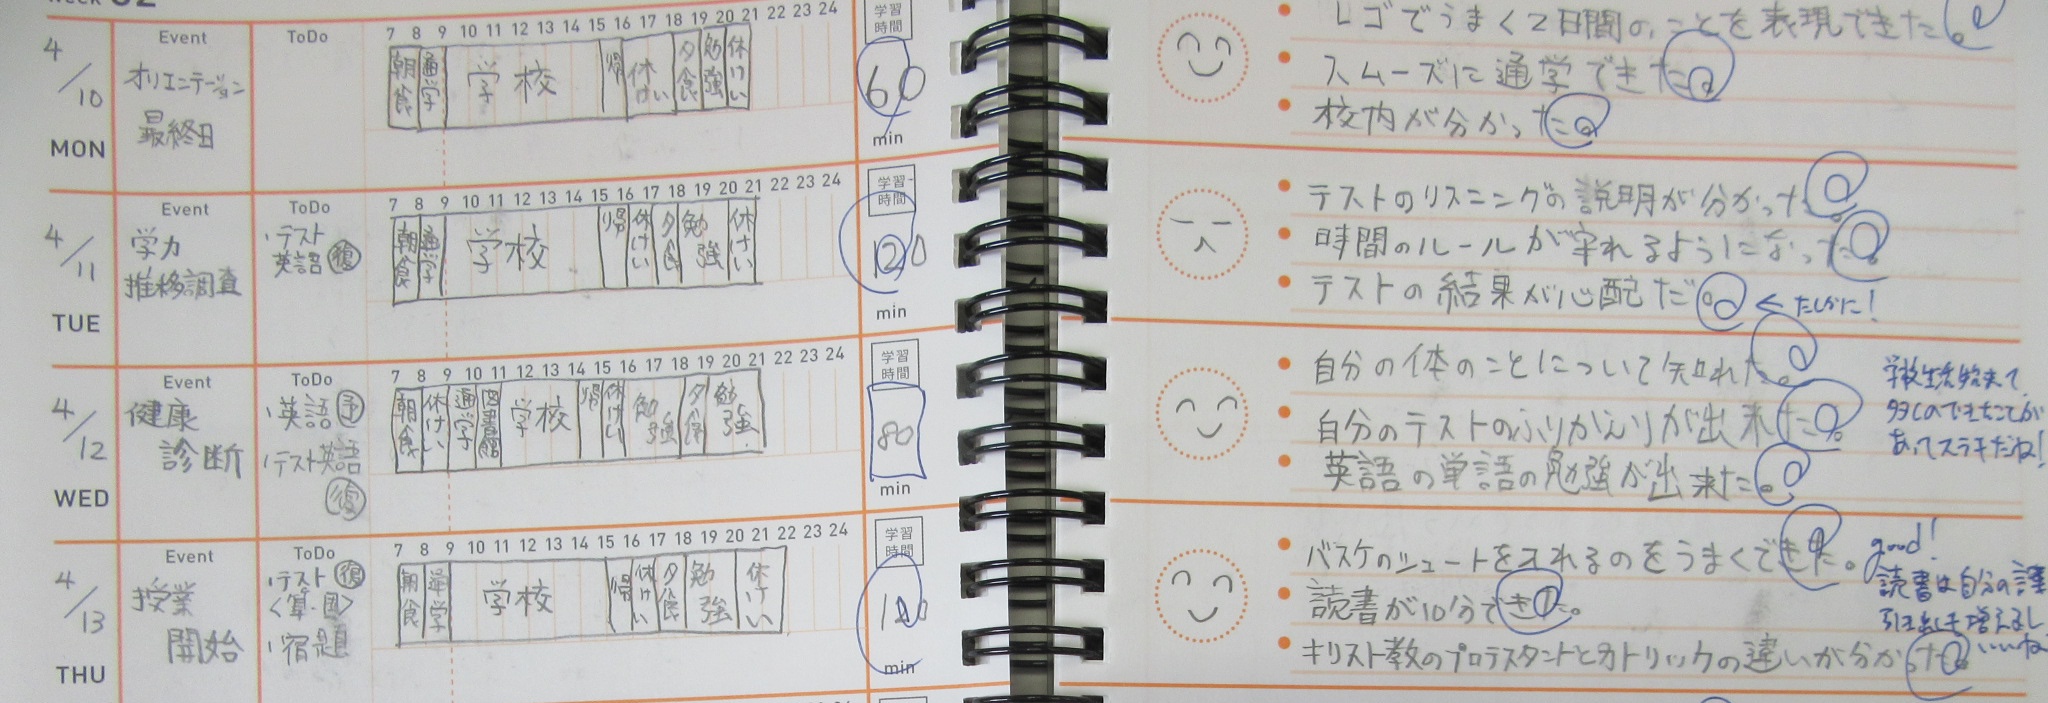 week 02
4/10
MON
Event
オリエンテーション
最終日
ToDo
7 8 9 10 11 12 13 14 15 16 17 18 19 20 21 22 23 24
朝食 通学 学校 帰 休けい 夕食 勉強 休けい
学習時間
60
min
レゴでうまく2日間のことを表現できた。
スムーズに通学できた。
校内が分かった。
4/11
TUE
Event
学力
推移調査
ToDo
・テスト
英語 復
7 8 9 10 11 12 13 14 15 16 17 18 19 20 21 22 23 24
朝食 通学 学校 帰 休けい 夕食 勉強 休けい
学習時間
120
min
テストのリスニングの説明が分かった。
時間のルールが守れるようになった。
テストの結果が心配だ。
← たしかに!
4/12
WED
Event
健康
診断
ToDo
・英語 予
・テスト英語
復
7 8 9 10 11 12 13 14 15 16 17 18 19 20 21 22 23 24
朝食 休けい 通学 図書館 学校 帰 休けい 勉強 夕食 勉強
学習時間
80
min
自分の体のことについて知れた。
自分のテストのふりかえりが出来た。
英語の単語の勉強が出来た。
学校生活始まって、
あってステキだね!
4/13
THU
Event
授業
開始
ToDo
・テスト 復
<算・国>
・宿題
7 8 9 10 11 12 13 14 15 16 17 18 19 20 21 22 23 24
朝食 通学 学校 帰 休けい 夕食 勉強 休けい
学習時間
120
min
バスケのシュートを入れるのをうまくできた。
読書が10分できた。
キリスト教のプロテスタントとカトリックの違いが分かった。
good!
読書は自分の
引き出しも増えるし
いいね